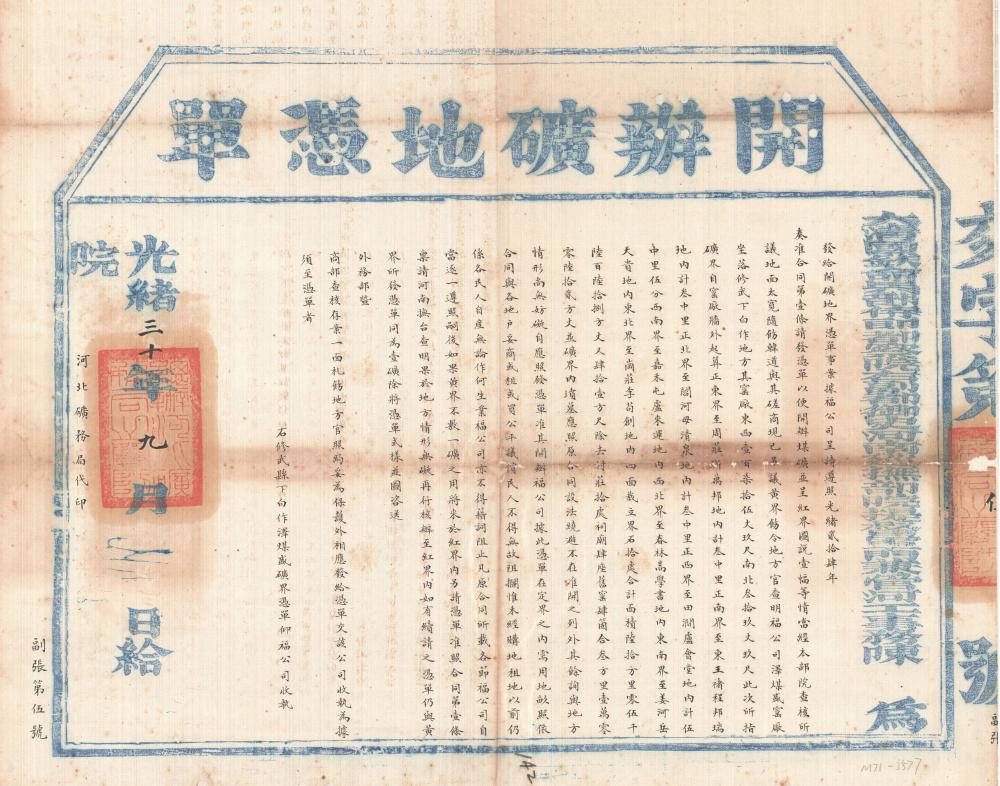 開辦礦地憑單
為
發給開礦地界憑單事案據福公司呈請遵照光緒貳拾肆年
奏准合同第壹條請發憑單以便開辦煤礦並呈紅界圖說壹幅等情當經本部院查核所
議地面太寬隨飭韓道與其磋商現已妥議黃界飭令地方官查明福公司澤煤盛窰廠
坐落修武下白作地方其窰廠東西壹百柒拾伍大玖尺南北叁拾玖丈玖尺此次所指
礦界自窰廠牆外起算正東界至周莊 萬邦地內計叁中里正南界至東王禇程邦瑞
地內計叁中里正北界至闇河母清泉地內計叁中里正西界至田澗盧會堂地內計伍
中里伍分西南界至嘉禾屯盧來運地內西北界至春林高學書地內東南界至姜河岳
天貴地內東北界至商莊李苟創地內四面栽立界石拾處合計面積陸拾方里零伍千
陸百陸拾捌方丈又肆拾壹方尺除去村莊拾處祠廟肆座舊窰肆箇合叁方里壹萬零
零陸拾貳方丈並礦界內墳墓應照原合同設法繞避不在准開之列外其餘詢與地方
情形尚無妨礙自應照發憑單准其開辦福公司據此憑單在定界之內需用地畝照依
合同與各地戶妥商或租或買公平議價民人不得無故阻攔惟未經購地租地以前仍
係各民人自產無論作何生業福公司亦不得藉詞阻止凡原合同所載各節福公司自
當逐一遵照嗣後如果黃界不敷一礦之用將來於紅界內另請憑單准照合同第壹條
稟請河南撫台查明果於地方情形無礙再行核辦至紅界內如有續請之憑單仍與黃
界所發憑單同為壹礦除將憑單式樣並圖咨送
外務部暨
商部查核存案一面札飭地方官照為妥為保護外相應發給憑單交該公司收執為據
須至憑單者
右修武縣下白作澤煤盛礦界憑單仰福公司收執
光緒三十年九月 日給
院
河北礦務局代印
副張第伍號
號
副張
142
M71-3577